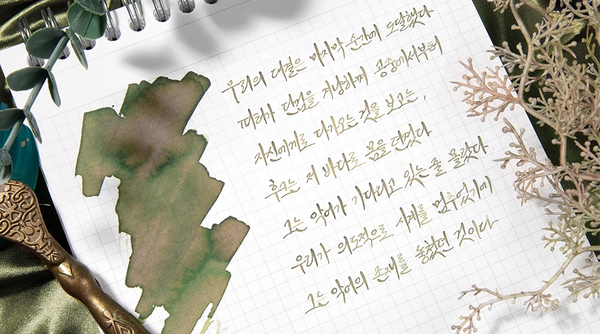 우리의 대결은 마지막 순간에 도달했다
피터가 단검을 겨냥하며 공중에서부터
자신에게로 다가오는 것을 보고는,
후크는 저 바다로 몸을 던졌다
그는 악어가 기다리고 있는 줄 몰랐다
우리가 의도적으로 시계를 멈추었기에
그는 악어의 존재를 놓쳤던 것이다